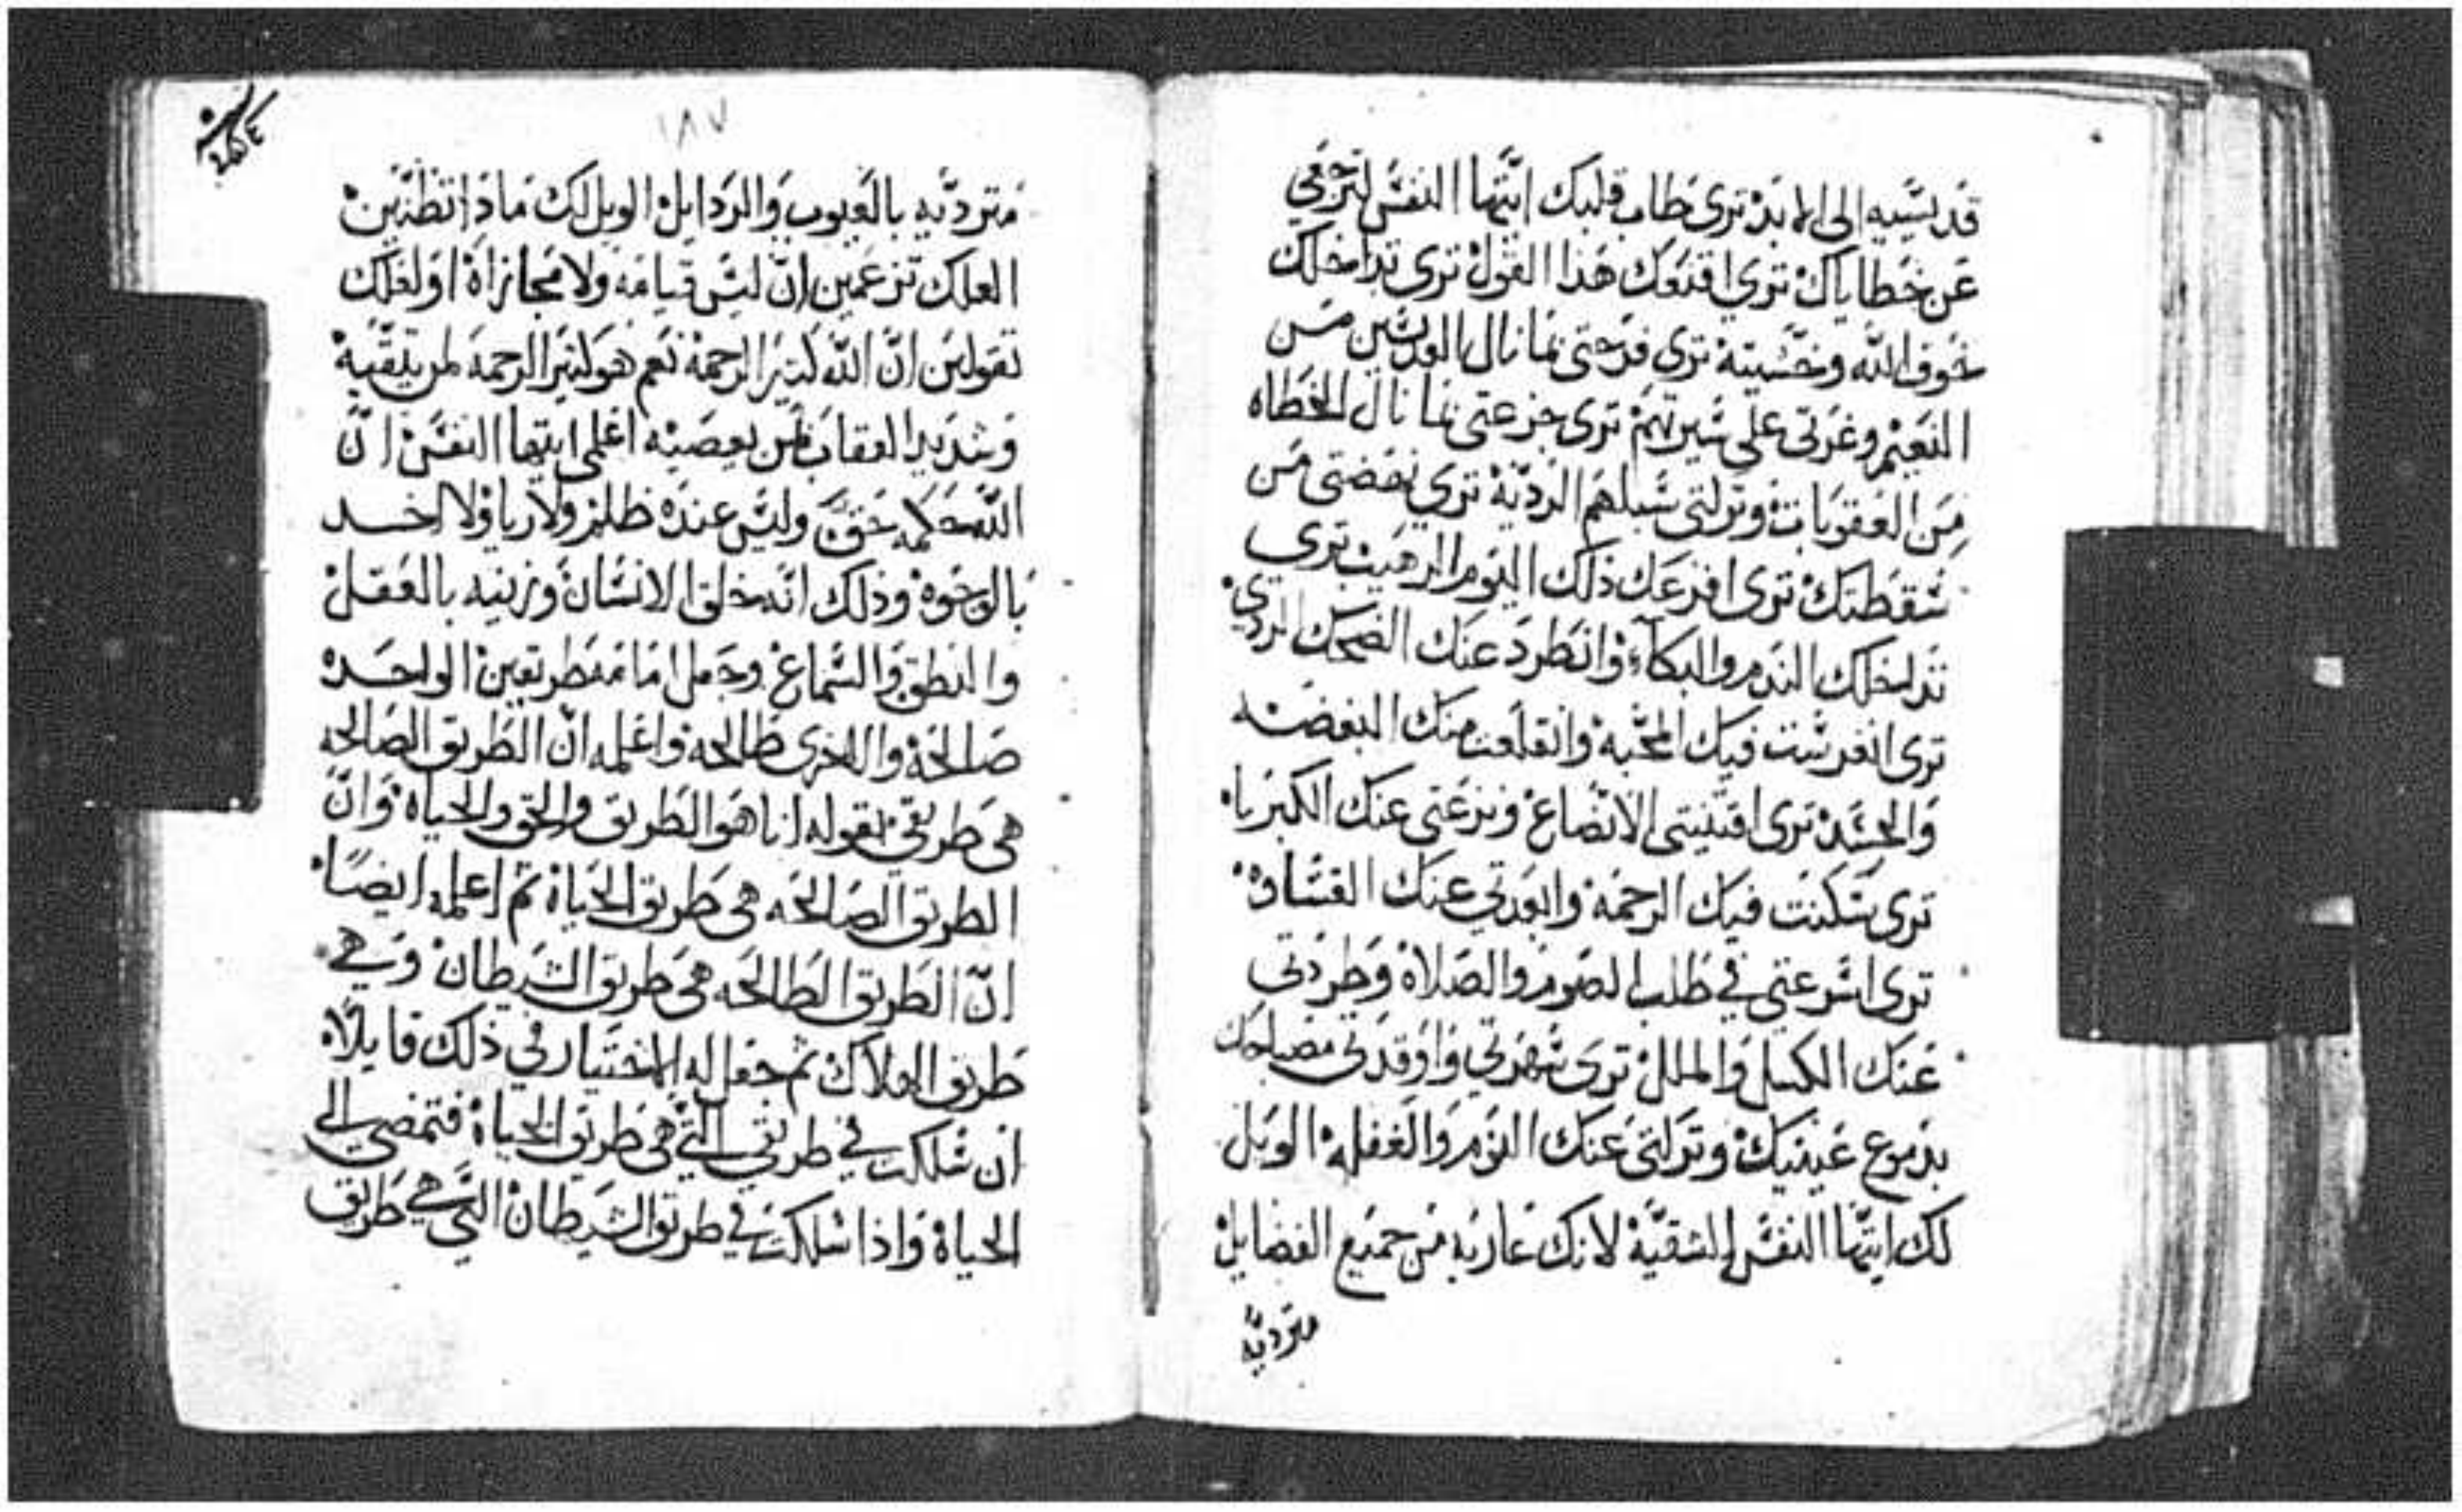 قديسيه الى الابد ترى خطاب قلبك ايتها النفس لترجعي
عن خطاياك ترى اقنعك هذا القول ترى تداخلك
خوف الله وخشيته ترى فرحتي بما نال القديسين من
النعيم وغرتي على سيرتهم ترى جزعتي بما نال الخطاه
من العقوبات وتركتي سبلهم الرديّة ترى نهضتي من
سقطتك ترى افزعك ذلك اليوم الرهيب ترى
تداخلك الندم والبكآء وانطرد عنك الضحك الردي
ترى انغرست فيك المحبّه وانقلعت منك البغضه
والحسد ترى اقتنيتي الاتضاع ونزعتي عنك الكبرياء
ترى سكنت فيك الرحمة وابعدتي عنك القساوة
ترى اسرعتي في طلب الصوم والصلاة وطردتي
عنك الكسل والملل ترى سهرتي واوقدتي مصباحك
بدموع عينيك وتركتي عنك النوم والغفله الويل
لك ايتها النفس الشقيّة لانك عاريه من جميع الفضايل
متردّيه
١٨٧
متردّيه بالعيوب والردايل الويل لك ماذا تظنّين
العلك تزعمين انّ ليس قيامه ولا مجازاة او لعلك
تقولين انّ الله كثير الرحمة نعم هو كثير الرحمة لمن يتقيه
وشديد العقاب لمن يعصيه اعلمي ايتها النفس انّ
الله حكمه حق وليس عنده ظلم ولا ريا ولا اخد
بالوجوه وذلك انه خلق الانسان وزينه بالعقل
والنطق والسماع وجعل امامه طريقين الواحده
صالحة والاخرى طالحه واعلمه انّ الطريق الصالحه
هي طريقي بقوله انا هو الطريق والحق والحياة وانّ
الطريق الصالحه هي طريق الحياة ثم اعلمه ايضًا
انّ الطريق الطالحه هي طريق الشيطان وهي
طريق الهلاك ثم جعل له الاختيار في ذلك قايلًا
ان سلكت في طريقي التي هي طريق الحياة فتمضي الى
الحياة واذا سلكت في طريق الشيطان التي هي طريق